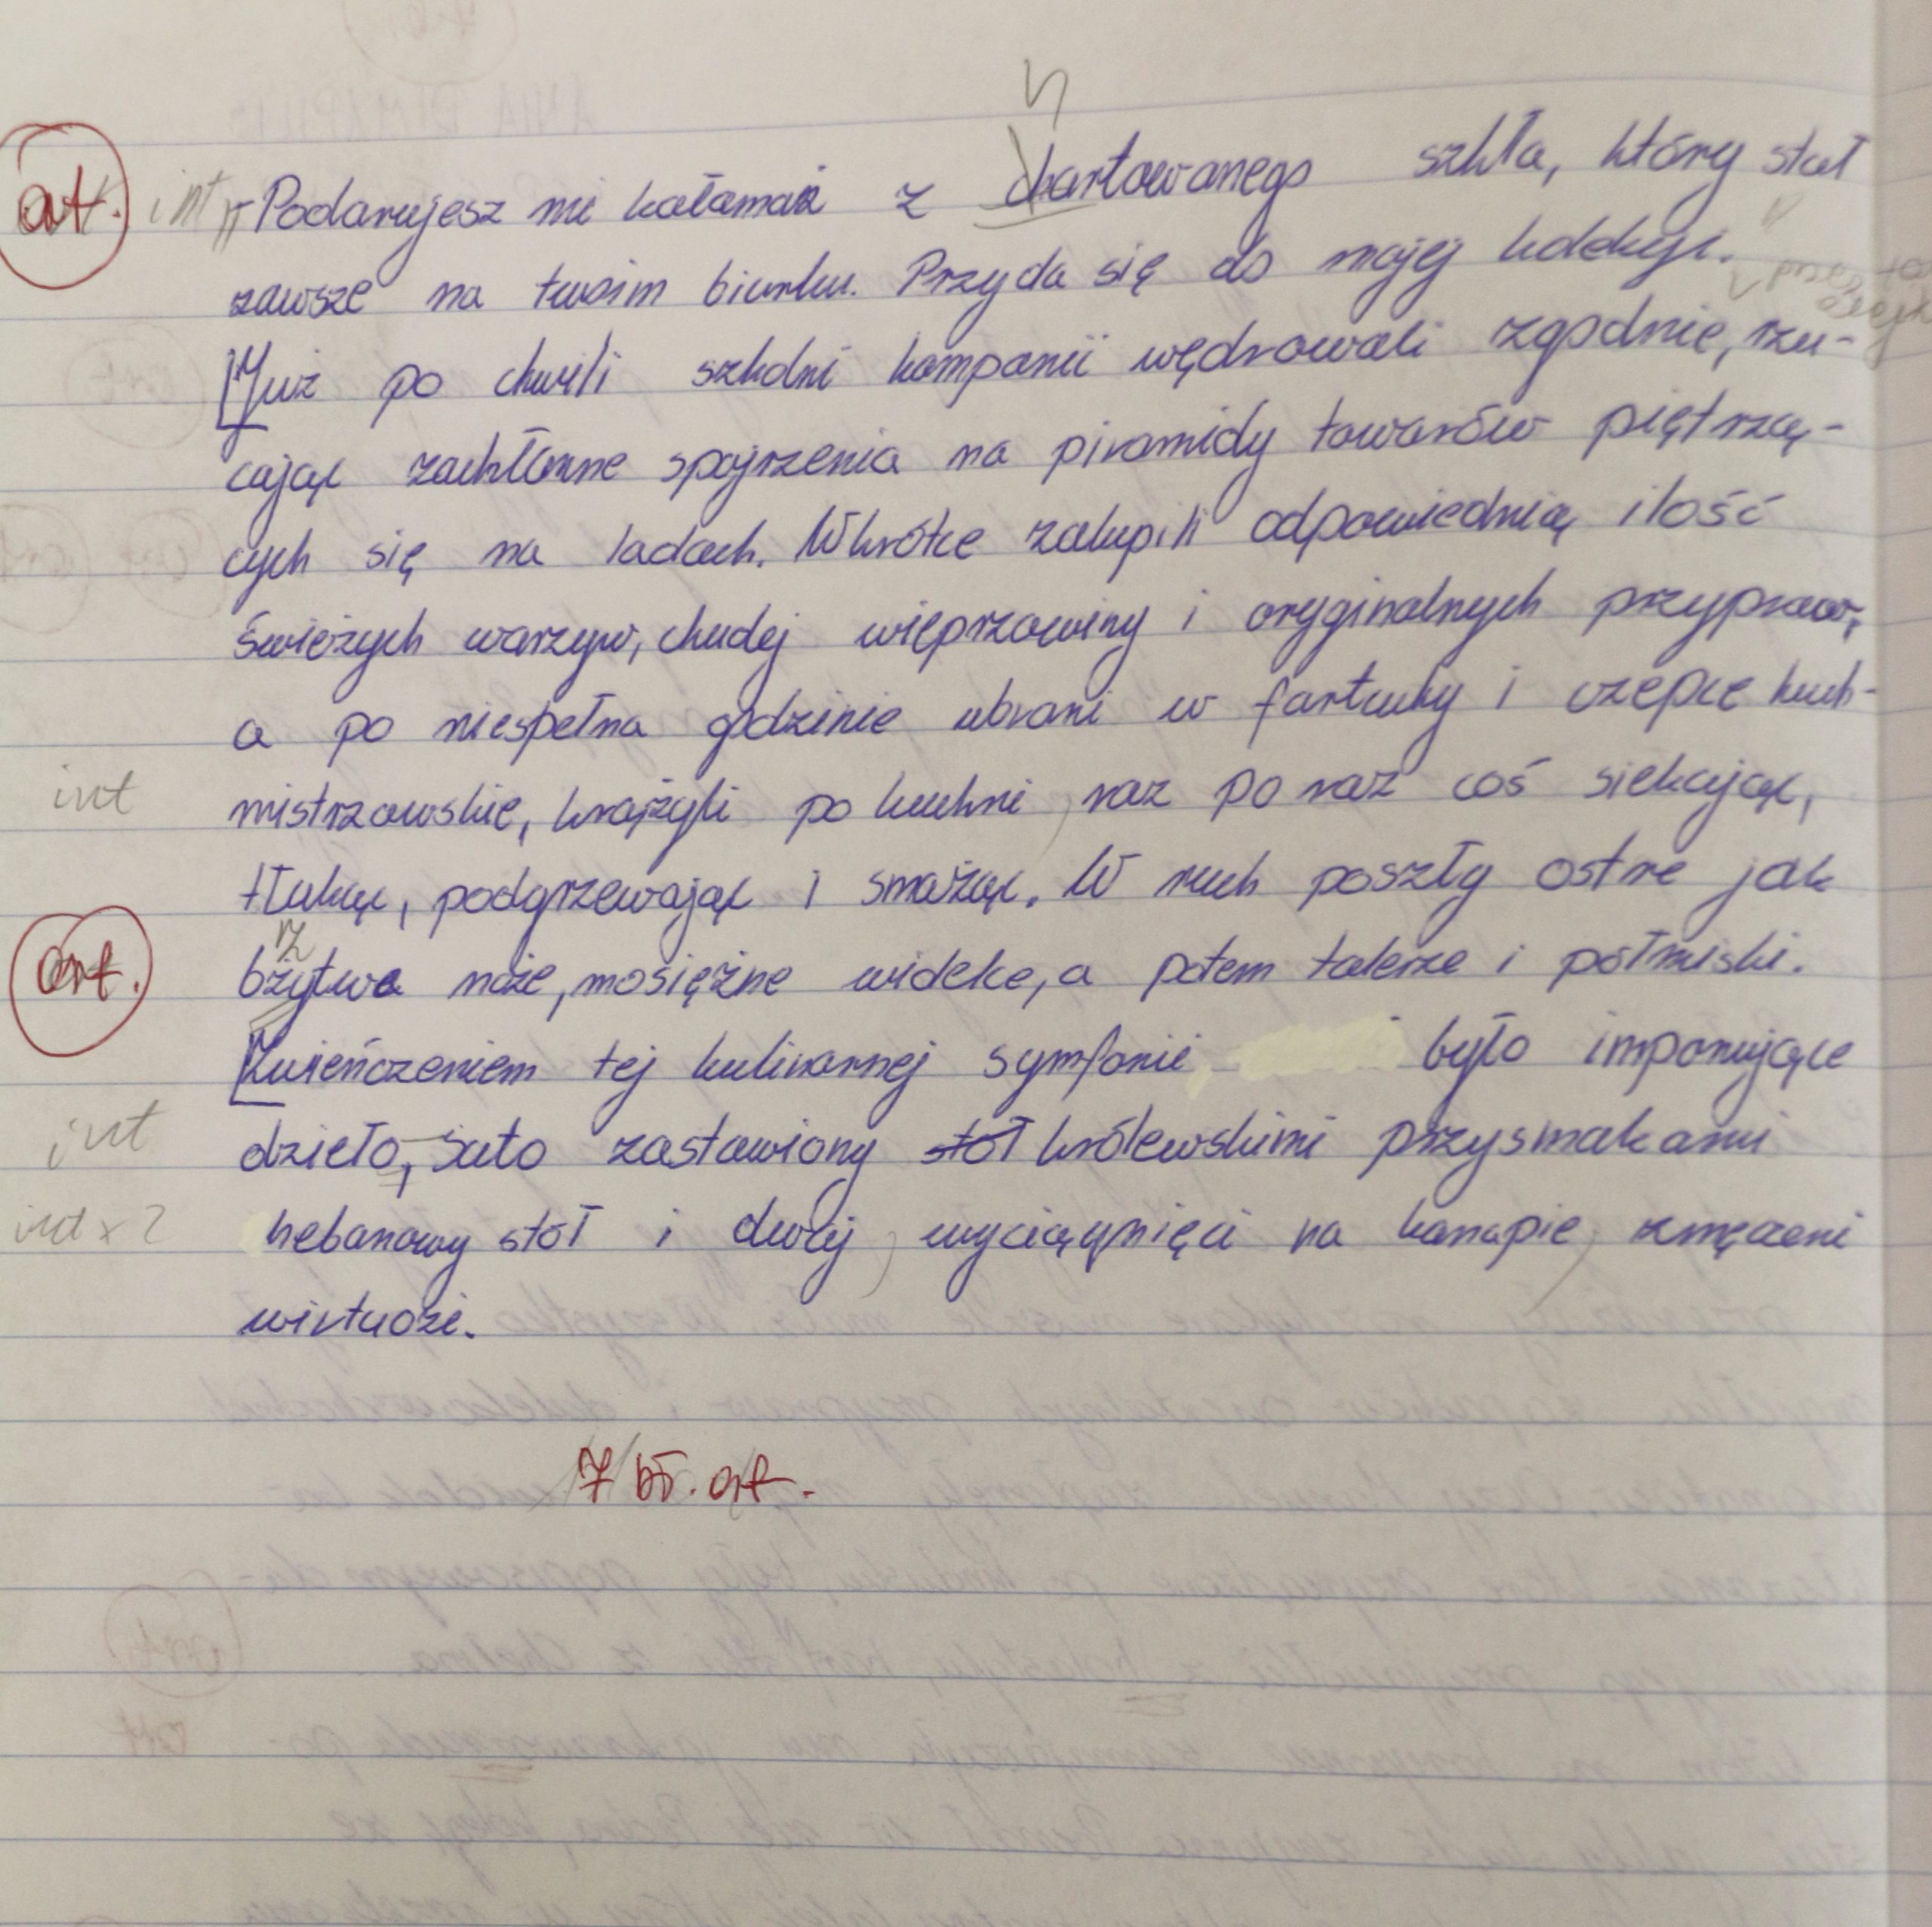 ort. int – Podarujesz mi kałamaż z chartowanego szkła, który stał
zawsze na twoim biurku. Przyda się do mojej kolekcji.
Już po chwili szkolni kompanii wędrowali zgodnie, rzu-
cając zachłanne spojrzenia na piramidy towarów piętrzą-
cych się na ladach. Wkrótce zakupili odpowiednią ilość
świeżych warzyw, chudej wieprzowiny i oryginalnych przypraw,
a po niespełna godzinie ubrani w fartuchy i czepce kuch-
int mistrzowskie, krążyli po kuchni, raz po raz coś siekając,
tłukąc, podgrzewając i smażąc. W ruch poszły ostre jak
rz
ort. bżytwa noże, mosiężne widelce, a potem talerze i półmiski.
Zwieńczeniem tej kulinarnej symfonii było imponujące
int dzieło, suto zastawiony stół królewskimi przysmakami
int x 2 hebanowy stół i dwaj, wyciągnięci na kanapie, zmęczeni
wirtuozi.
7 bł. ort.